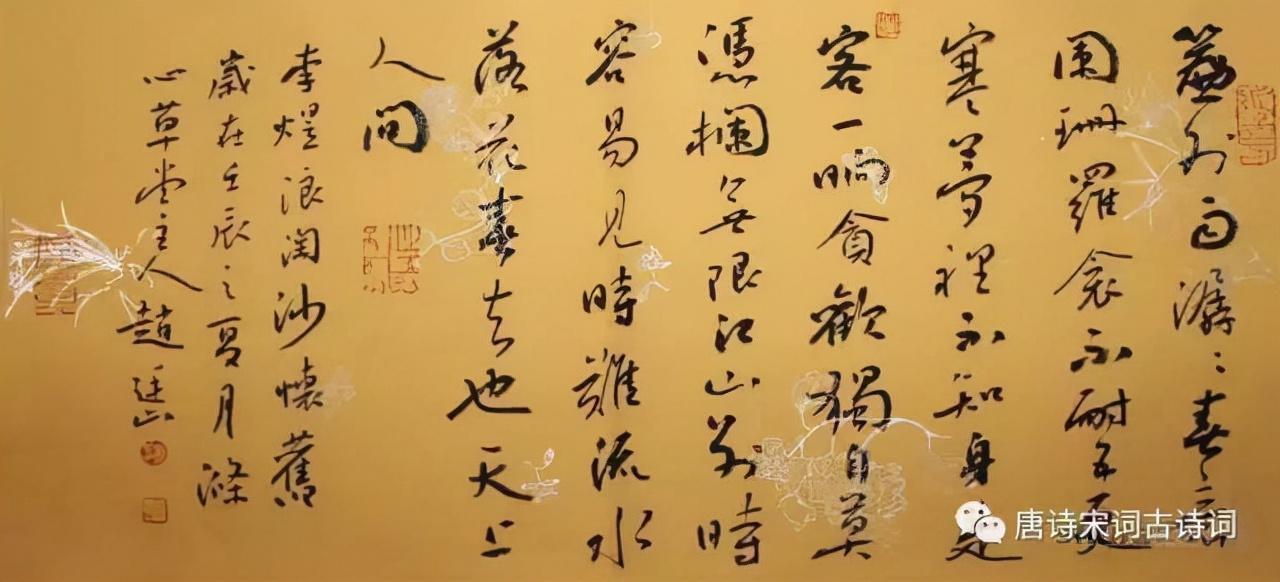 簾外雨潺〻春意
闌珊羅衾不耐五更
寒夢裡不知身是
客一晌貪歡獨自莫
憑欄無限江山別時
容易見時難流水
落花春去也天上
人間
李煜浪淘沙懷舊
歲在壬辰之夏月滌
心草堂主人趙
唐诗宋词古诗词